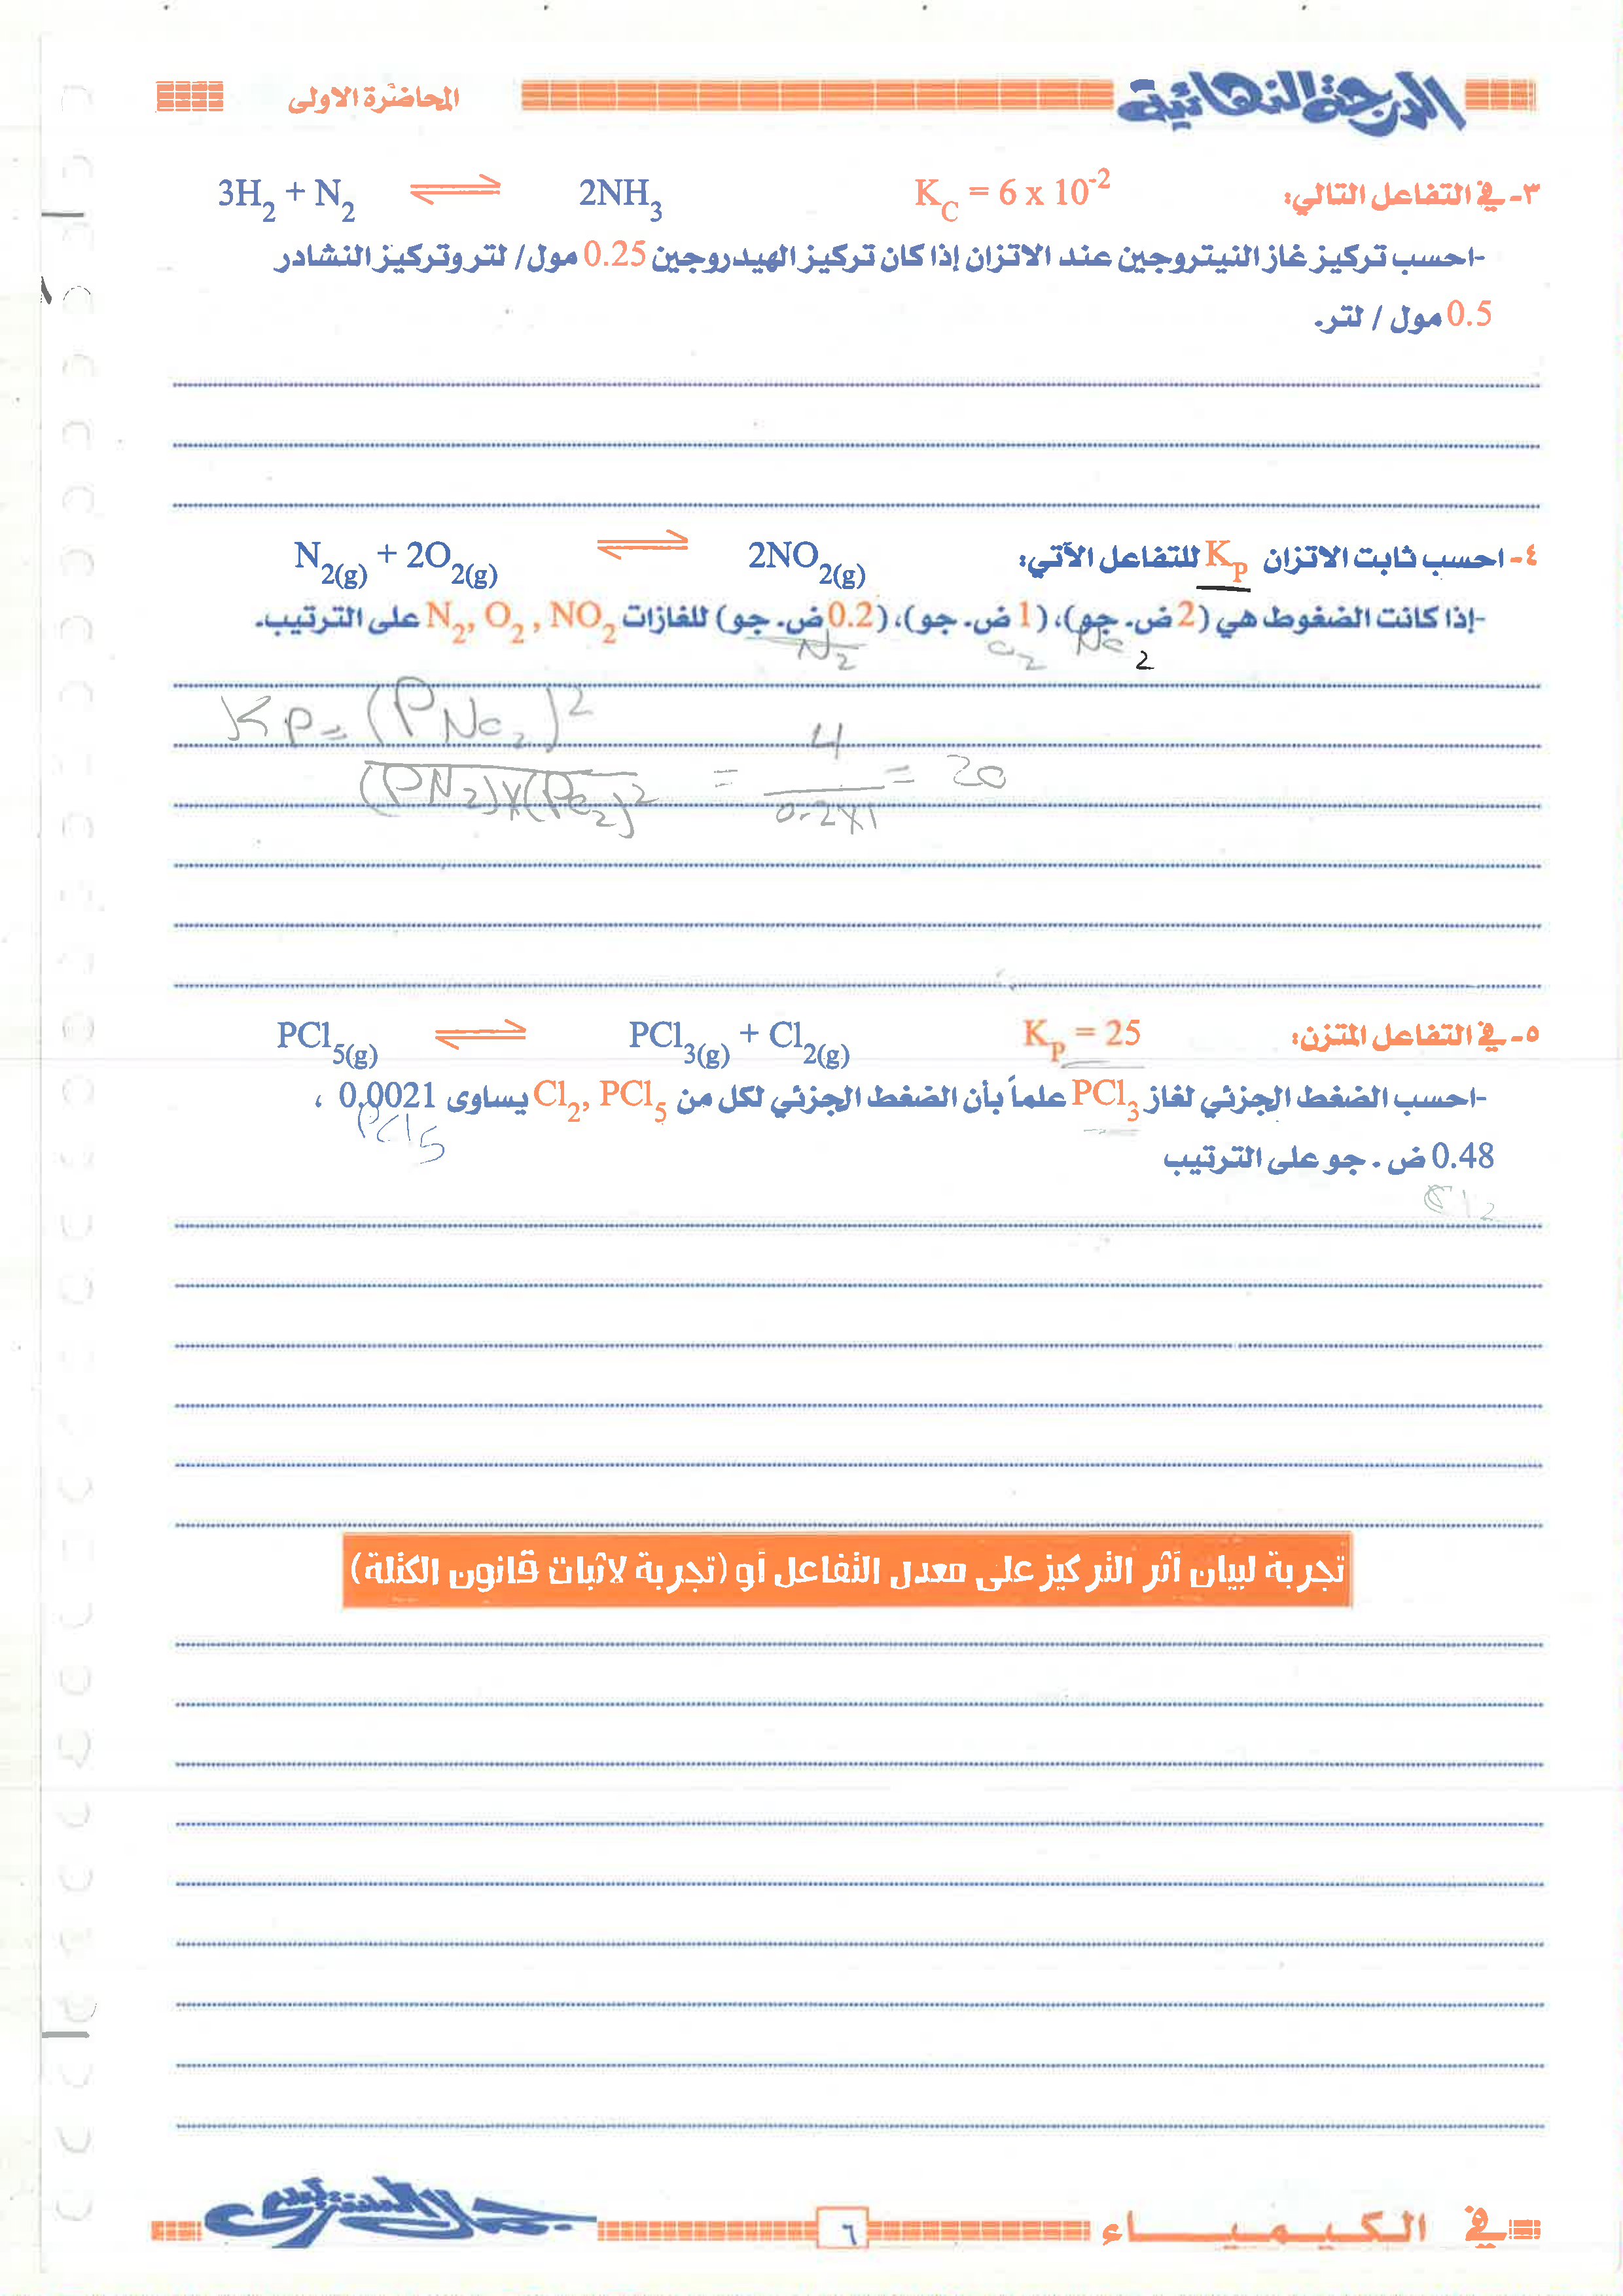 الدرجة النهائية المحاضرة الاولى
٣- في التفاعل التالي: 3H2 + N2 ⇌ 2NH3 KC = 6 x 10-2
-احسب تركيز غاز النيتروجين عند الاتزان إذا كان تركيز الهيدروجين 0.25 مول/ لتر وتركيز النشادر
0.5 مول / لتر.
٤- احسب ثابت الاتزان KP للتفاعل الآتي: N2(g) + 2O2(g) ⇌ 2NO2(g)
-إذا كانت الضغوط هي (2 ض. جو)، (1 ض. جو)، (0.2 ض. جو) للغازات N2, O2 , NO2 على الترتيب.
N2 O2 NO2
KP = (PNO2)2
(PN2)x(PO2)2 = 4 / 0.2x1 = 20
٥- في التفاعل المتزن: PCl5(g) ⇌ PCl3(g) + Cl2(g) KP = 25
-احسب الضغط الجزئي لغاز PCl3 علماً بأن الضغط الجزئي لكل من Cl2, PCl5 يساوى 0.0021 ،
PCl5
0.48 ض . جو على الترتيب
Cl2
تجربة لبيان أثر التركيز على معدل التفاعل أو (تجربة لاثبات قانون الكتلة)
في الكيمياء ٦